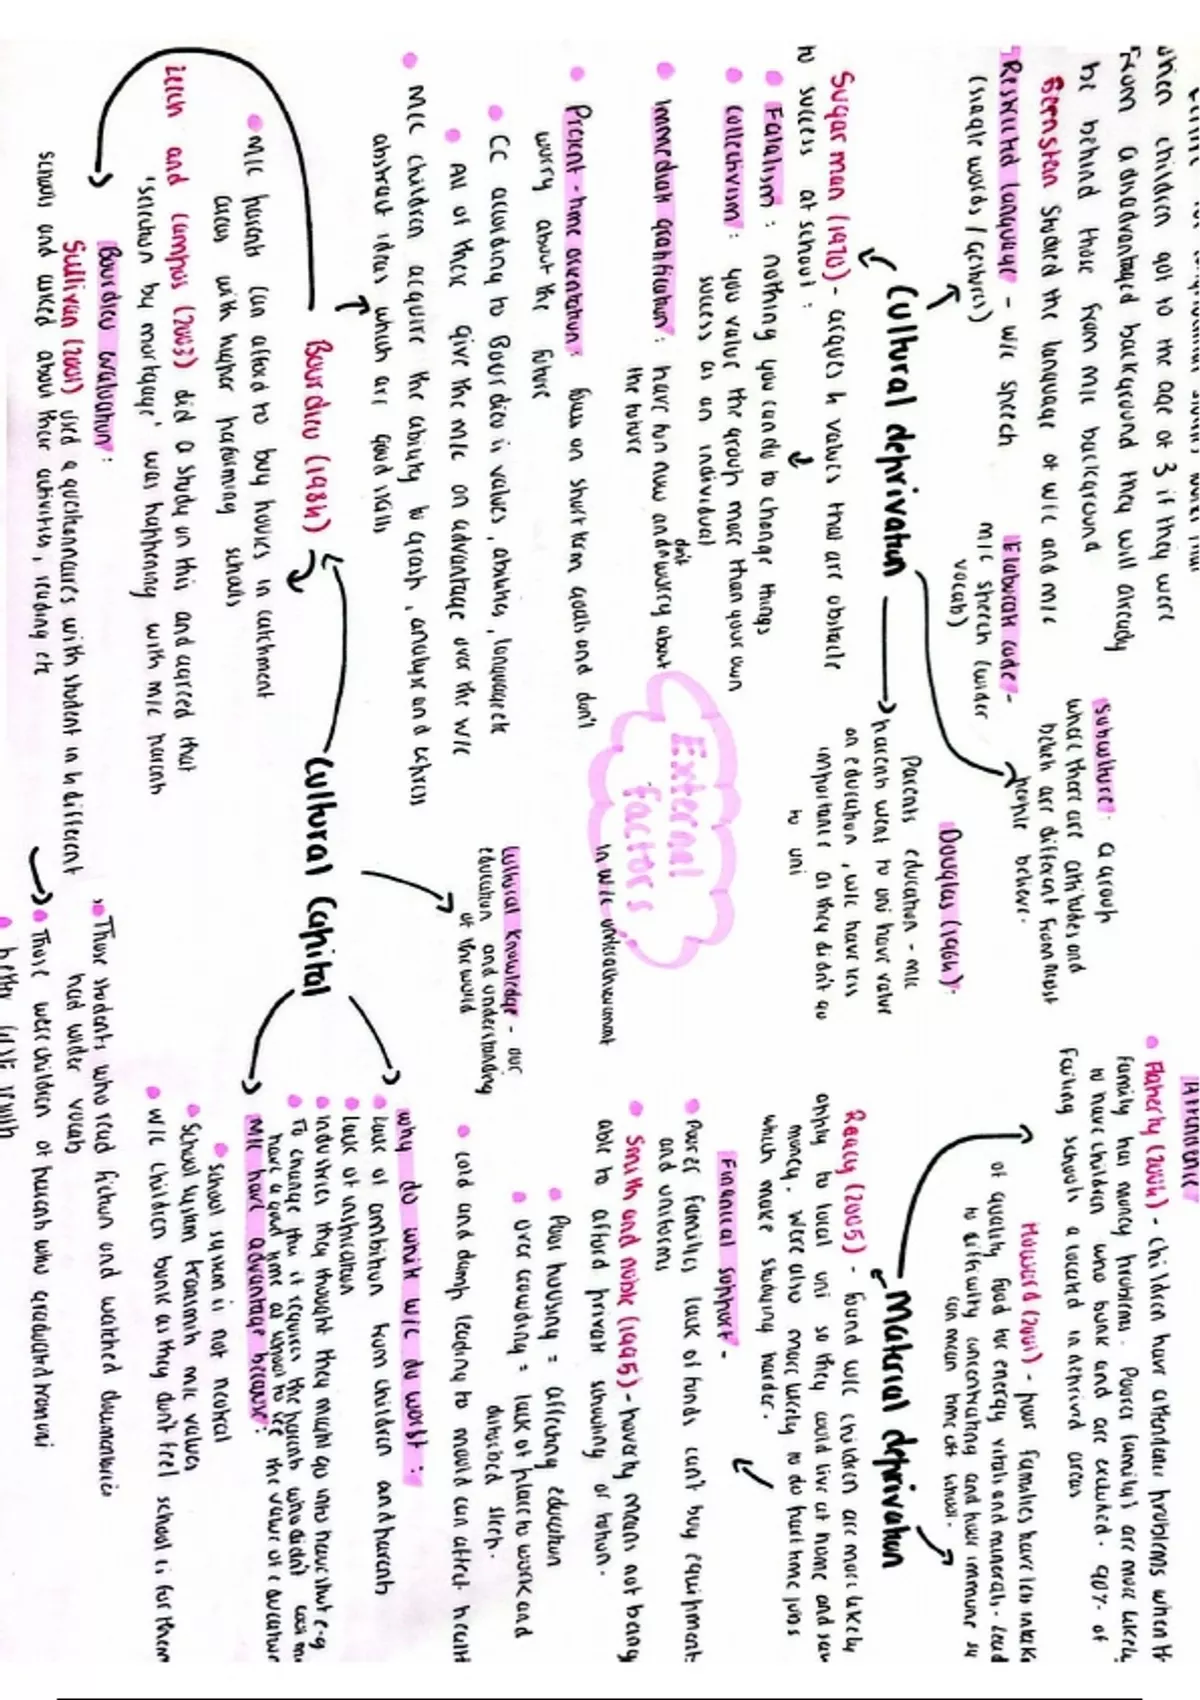 when children got to the age of 3 if they were
from a disadvantaged background they will already
be behind those from mlc background
Bernstein studied the language of wlc and mlc
Restricted language - wlc speech
(single words / gestures)
Elaborate code -
mlc speech (wider
vocab)
Subculture: a group
where there are attitudes and
beliefs are different from most
people believe.
Cultural deprivation
Sugarman (1970) - argues 4 values that are obstacle
to success at school:
Fatalism: nothing you can do to change things
Collectivism: you value the group more than your own
success as an individual
Immediate gratification: have fun now and don't worry about
the future
Present-time orientation: focus on short term goals and don't
worry about the future
Douglas (1964):-
Parents education - mlc
parent went to uni have value
on education, wlc have less
importance as they didn't go
to uni
External
factors
in wlc underachievement
CC according to Bourdieu is values, abilities, language etc
All of these give the mlc an advantage over the wlc
mlc children acquire the ability to grasp, analyse and express
abstract ideas which are good skills
Bourdieu (1984)
Cultural Capital
cultural knowledge - our
education and understanding
of the world
mlc parents can afford to buy houses in catchment
areas with higher performing schools
Leech and Campos (2003) did a study on this and agreed that
'selection by mortgage' was happening with mlc parents
Bourdieu evaluation:
Sullivan (2001) used a questionnaires with student in 4 different
schools and asked about their activities, reading etc
Those students who read fiction and watched documentaries
had wider vocab
Those were children of parents who graduated from uni
why do white wlc do worst:
Lack of ambition from children and parents
Lack of inspiration
industries they thought they might go into have shut e.g
To change this it requires the parents who didn't
have a good time at school to see the value of education
mlc have advantage because:
school system is not neutral
School system transmits mlc values
wlc children bunk as they don't feel school is for them
Attendance
Flaherty (2004) - children have attendance problems when
family has money problems. Poorer family's are more likely
to have children who bunk and are excluded. 90% of
failing schools a located in deprived areas
Howard (2001) - poor families have less intake
of quality food so energy, vitals and minerals. Lead
to difficulty concentrating and poor immune
can mean time off school.
Material deprivation
Reacy (2005) - found wlc children are more likely
apply to local uni so they could live at home and save
money. Were also more likely to do part time jobs
which make studying harder.
Financial support -
Poorer families lack of funds can't buy equipment
and uniforms
Smith and noble (1995) - poverty means not being
able to afford private schooling or tuition.
Poor housing = affecting education
over crowding = lack of place to work and
disturbed sleep.
cold and damp leading to mould can affect health